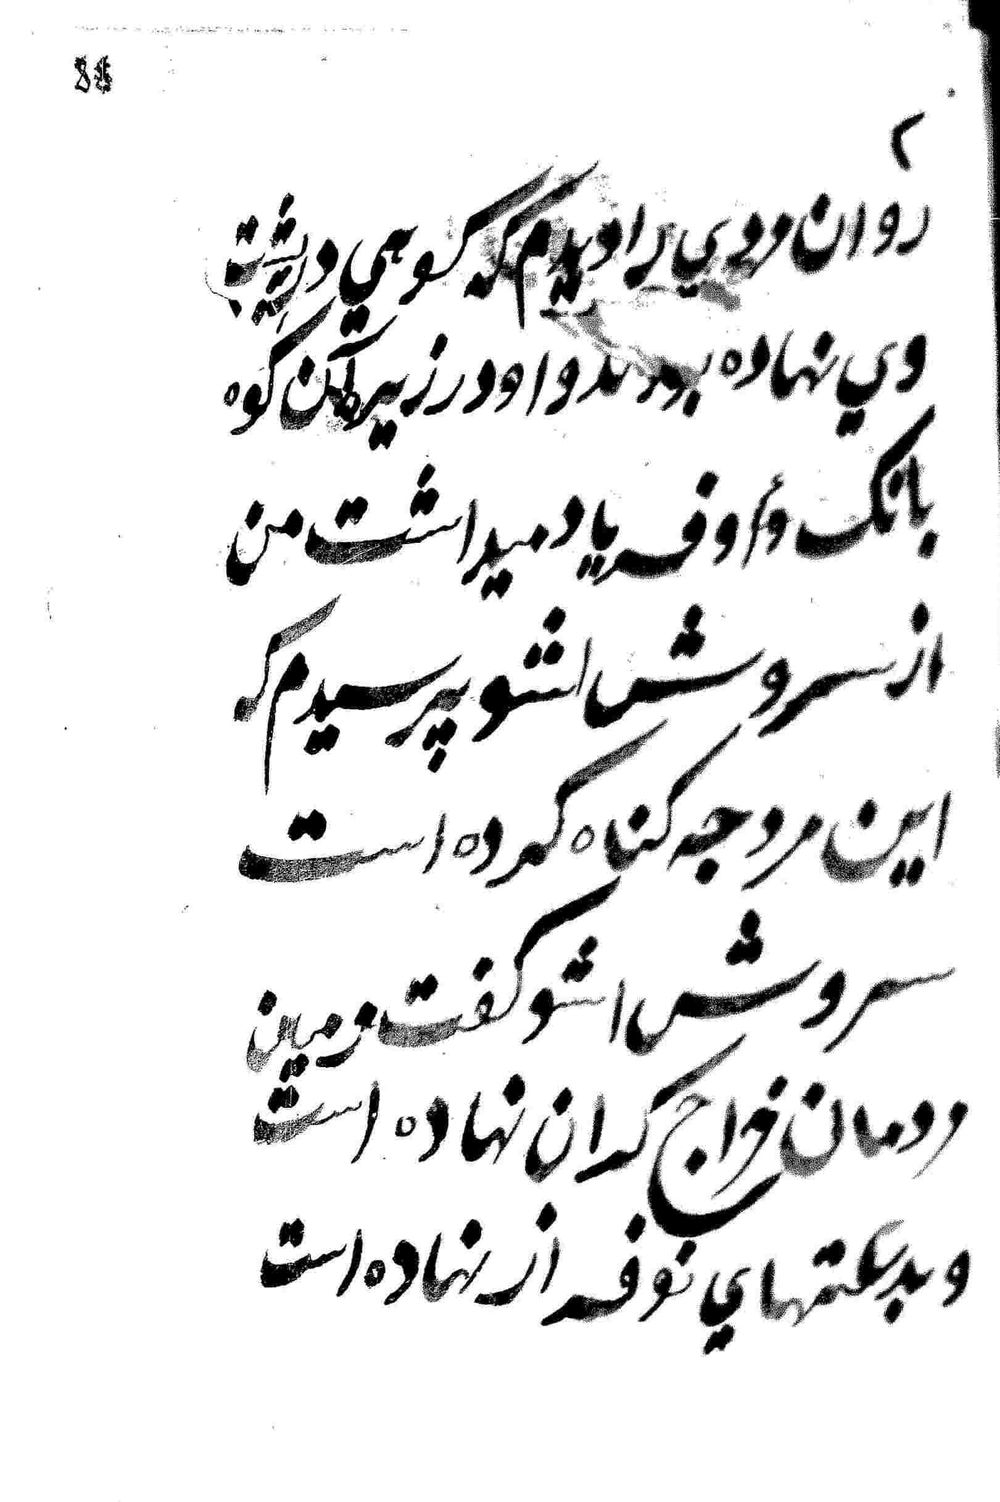 88
۲
روان مردي را ديدم كه كوهي در پشت
وي نهاده بودند و او در زير آن كوه
بانك و أو فرياد ميداشت من
از سروش اشو پرسيدم كه
اين مرد چه كناه كرده است
سروش اشو كفت در ميان
مردمان خراج كران نهاده است
و بدعتهاي نو فراز نهاده است